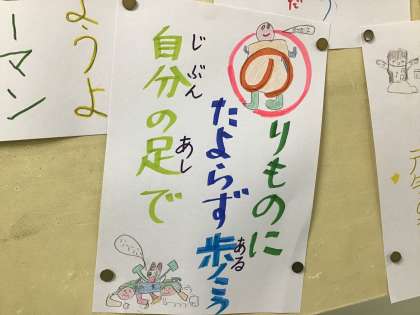 のりものに
たよらず歩こう
ある
自分の足で
じぶん
あし
ようよ
ーマン